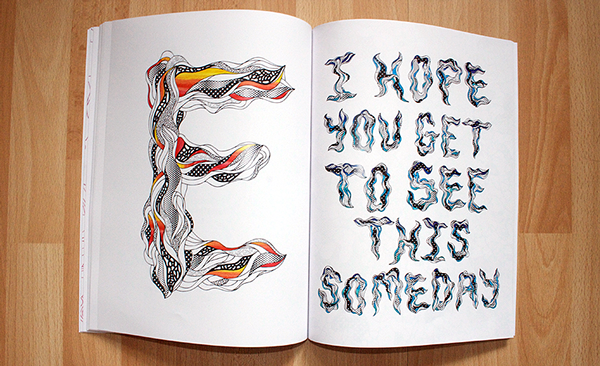 E
I HOPE
YOU GET
TO SEE
THIS
SOMEDAY